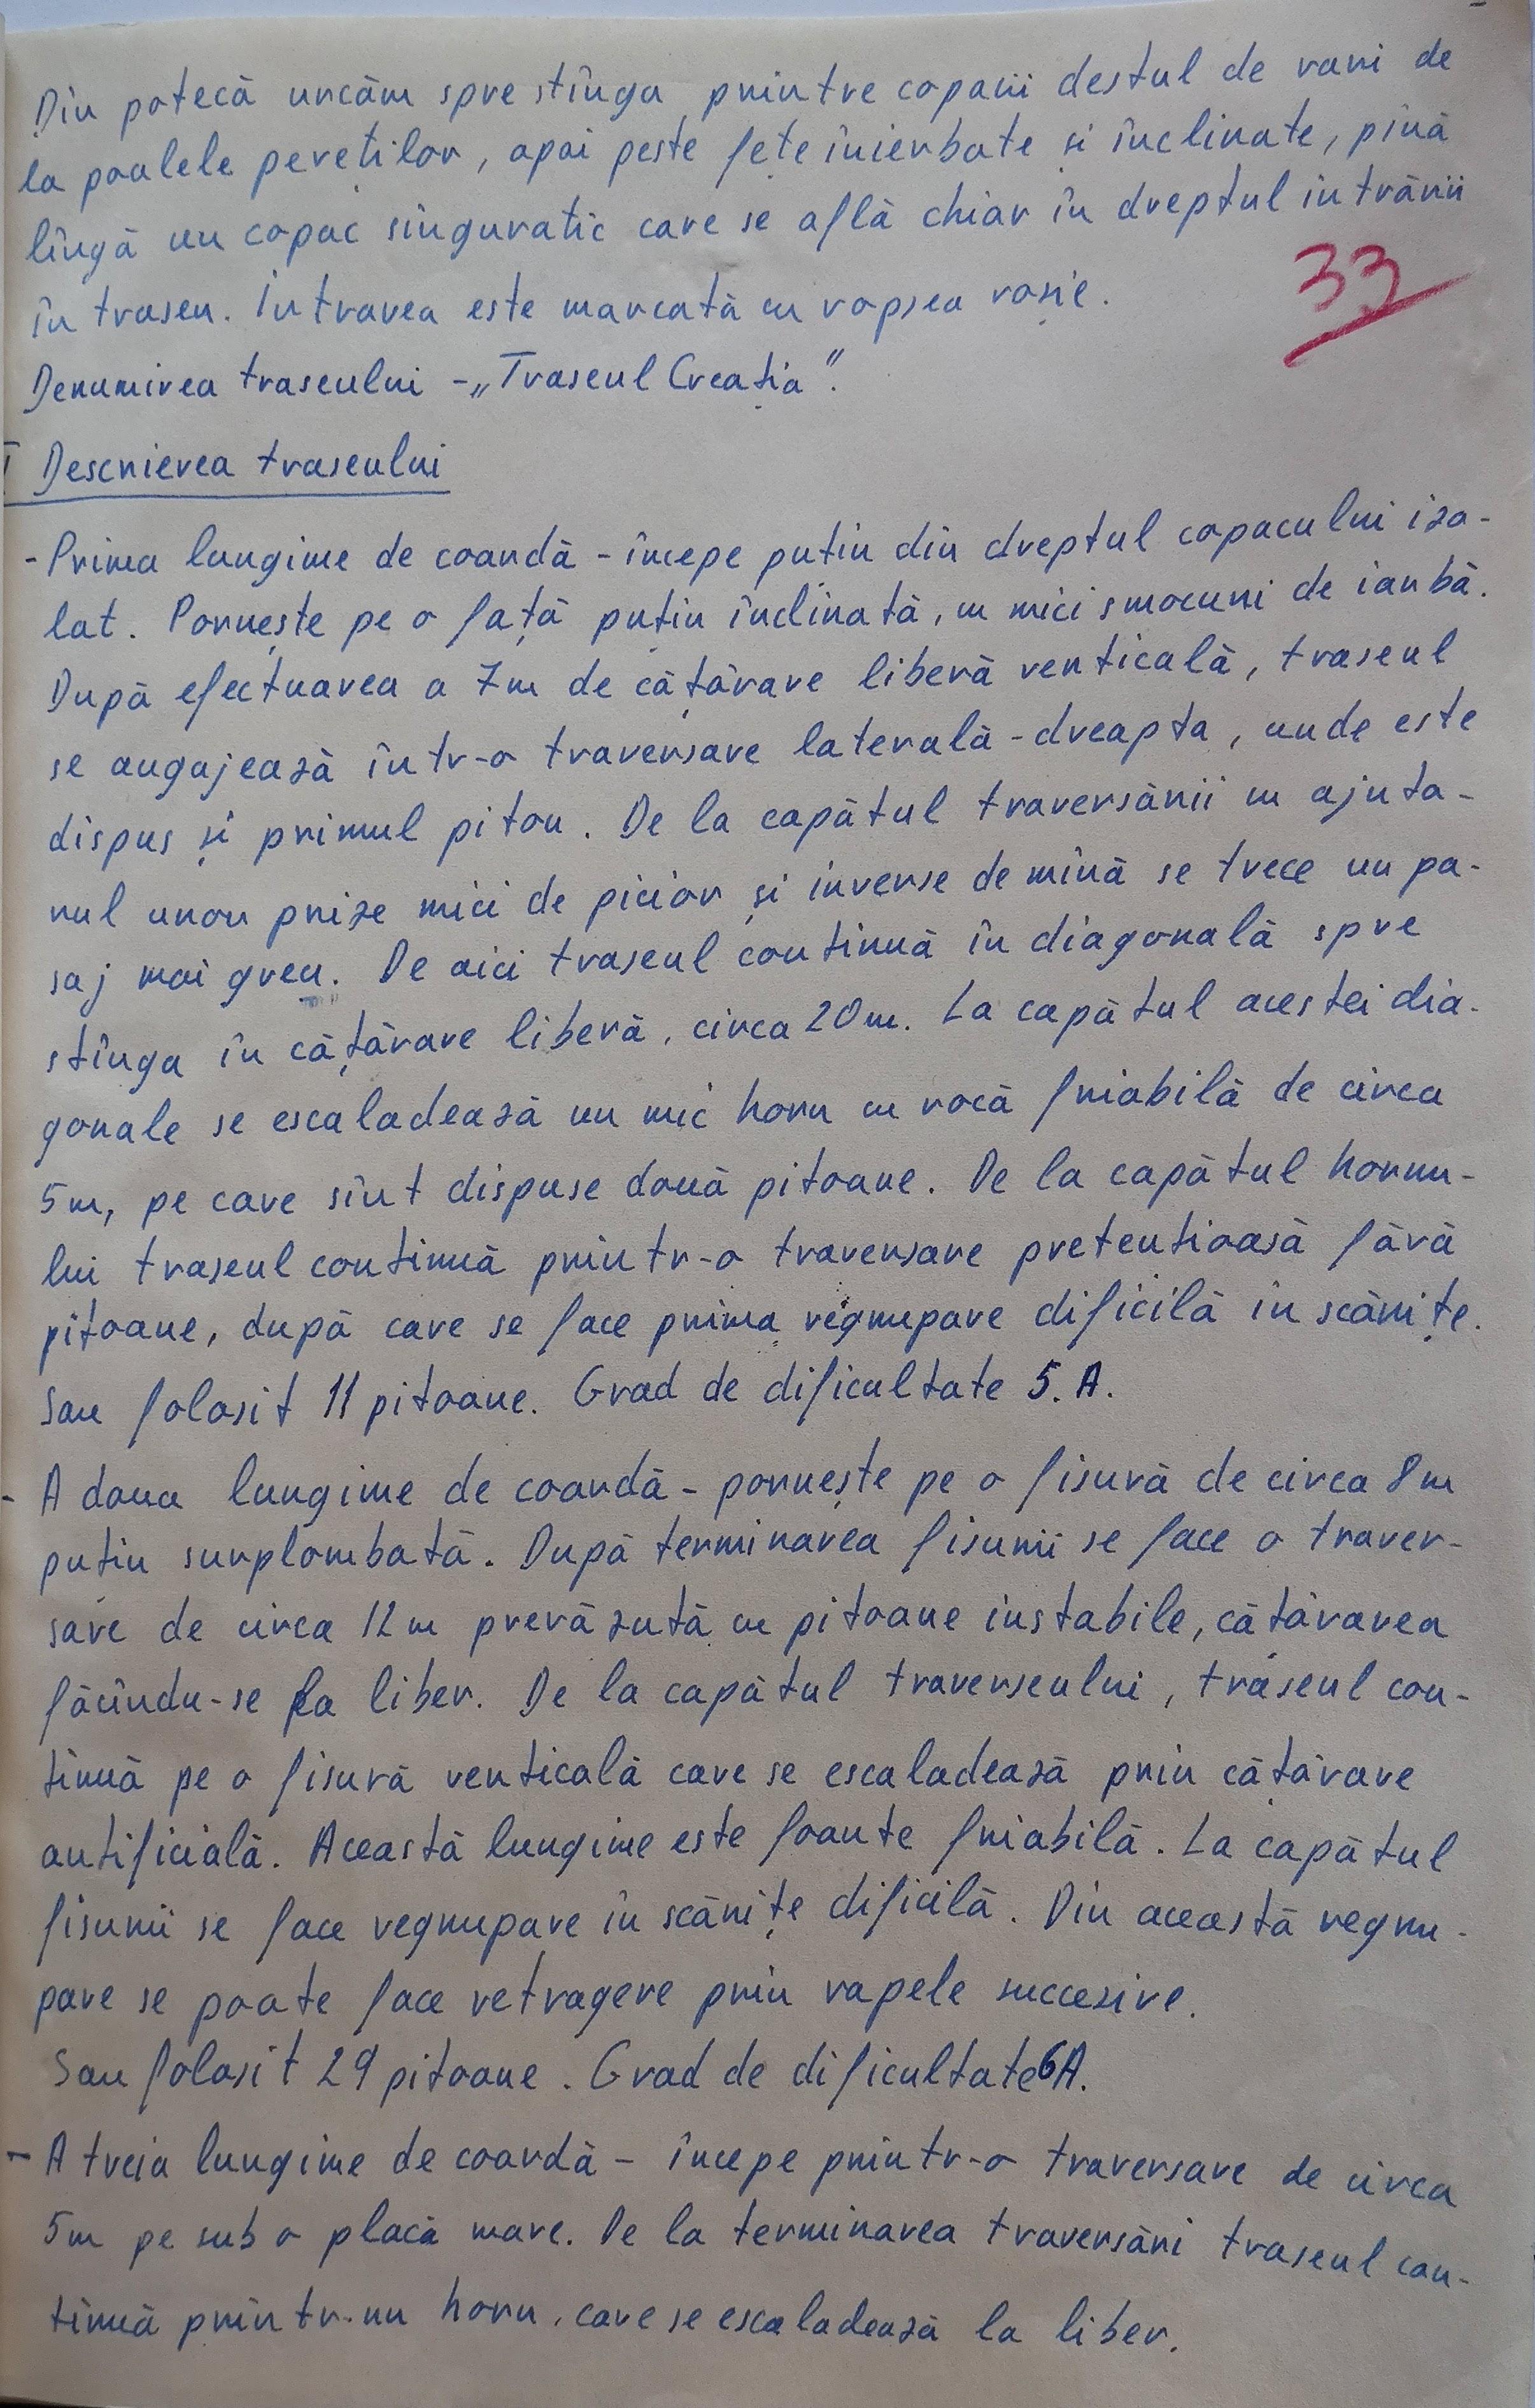 Din potecă urcăm spre stînga printre copacii destul de rari de
la poalele pereților, apoi peste fețe înierbate și înclinate, pînă
lîngă un copac singuratic care se află chiar în dreptul intrării
în traseu. Intrarea este marcată cu vopsea roșie.
33
Denumirea traseului - „Traseul Creația”.
I Descrierea traseului
- Prima lungime de coardă - începe puțin din dreptul copacului izo-
lat. Pornește pe o față puțin înclinată, cu mici smocuri de iarbă.
După efectuarea a 7m de cățărare liberă verticală, traseul
se angajează într-o traversare laterală-dreapta, unde este
dispus și primul piton. De la capătul traversării cu ajuto-
rul unor prize mici de picior și inverse de mînă se trece un pa-
saj mai greu. De aici traseul continuă în diagonală spre
stînga în cățărare liberă, circa 20m. La capătul acestei dia-
gonale se escaladează un mic horn cu rocă friabilă de circa
5m, pe care sînt dispuse două pitoane. De la capătul hornu-
lui traseul continuă printr-o traversare pretentioasă fără
pitoane, după care se face prima regrupare dificilă în scărițe.
Sau folosit 11 pitoane. Grad de dificultate 5.A.
- A doua lungime de coardă - pornește pe o fisură de circa 8m
puțin surplombată. După terminarea fisurii se face o traver-
sare de circa 12m prevăzută cu pitoane instabile, cățărarea
făcîndu-se la liber. De la capătul traverseului, traseul con-
tinuă pe o fisură verticală care se escaladează prin cățărare
artificială. Această lungime este foarte friabilă. La capătul
fisurii se face regrupare în scărițe dificilă. Din această regru-
pare se poate face retragere prin rapele succesive.
Sau folosit 29 pitoane. Grad de dificultate 6A.
- A treia lungime de coardă - începe printr-o traversare de circa
5m pe sub o placă mare. De la terminarea traversări traseul con-
tinuă printr-un horn, care se escaladează la liber.